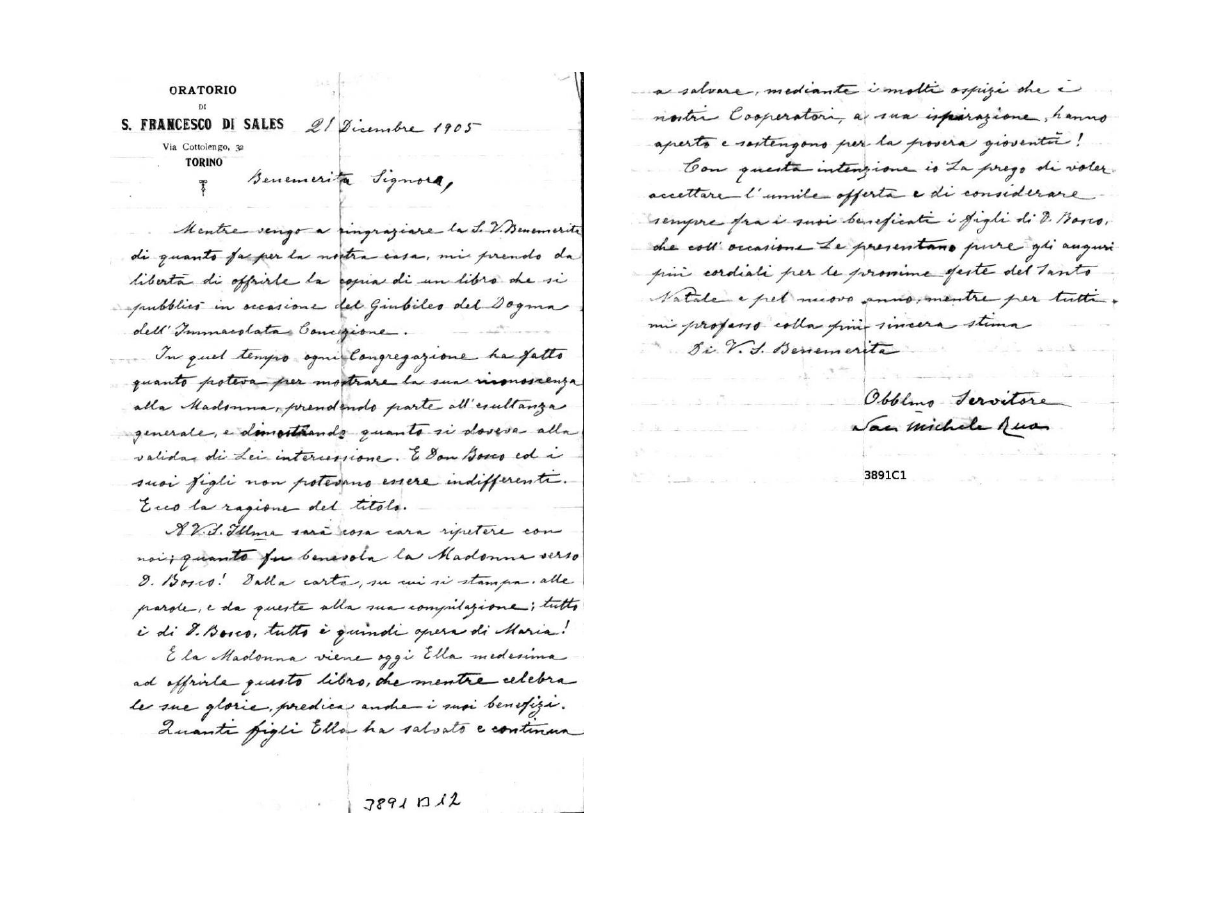 ORATORIO
DI
S. FRANCESCO DI SALES
Via Cottolengo, 32
TORINO
21 Dicembre 1905
Benemerita Signora,
Mentre vengo a ringraziare la S. V. Benemerita
di quanto fa per la nostra casa, mi prendo da
libertà di offrirle la copia di un libro che si
pubblicò in occasione del Giubileo del Dogma
dell'Immacolata Concezione.
In quel tempo ogni Congregazione ha fatto
quanto poteva per mostrare la sua riconoscenza
alla Madonna, prendendo parte all'esultanza
generale, e dimostrando quanto si doveva alla
valida di Lei intercessione. E Don Bosco ed i
suoi figli non potevano essere indifferenti.
Ecco la ragione del titolo.
A V. S. Illma sarà cosa cara ripetere con
noi: quanto fu benevola la Madonna verso
D. Bosco! Dalla carta, su cui si stampa, alle
parole, e da queste alla sua compilazione; tutto
è di D. Bosco, tutto è quindi opera di Maria!
E la Madonna viene oggi Ella medesima
ad offrirle questo libro, che mentre celebra
le sue glorie, predica anche i suoi benefizi.
Quanti figli Ella ha salvato e continua
3891 B 12
a salvare, mediante i molti ospizi che i
nostri Cooperatori, a sua ispirazione, hanno
aperto e sostengono per la povera gioventù!
Con questa intenzione io La prego di voler
accettare l'umile offerta e di considerare
sempre fra i suoi beneficati i figli di D. Bosco,
che coll'occasione Le presentano pure gli auguri
più cordiali per le prossime feste del Santo
Natale e pel nuovo anno, mentre per tutti
mi professo colla più sincera stima
Di V. S. Benemerita
Obblmo Servitore
Sac. Michele Rua
3891C1